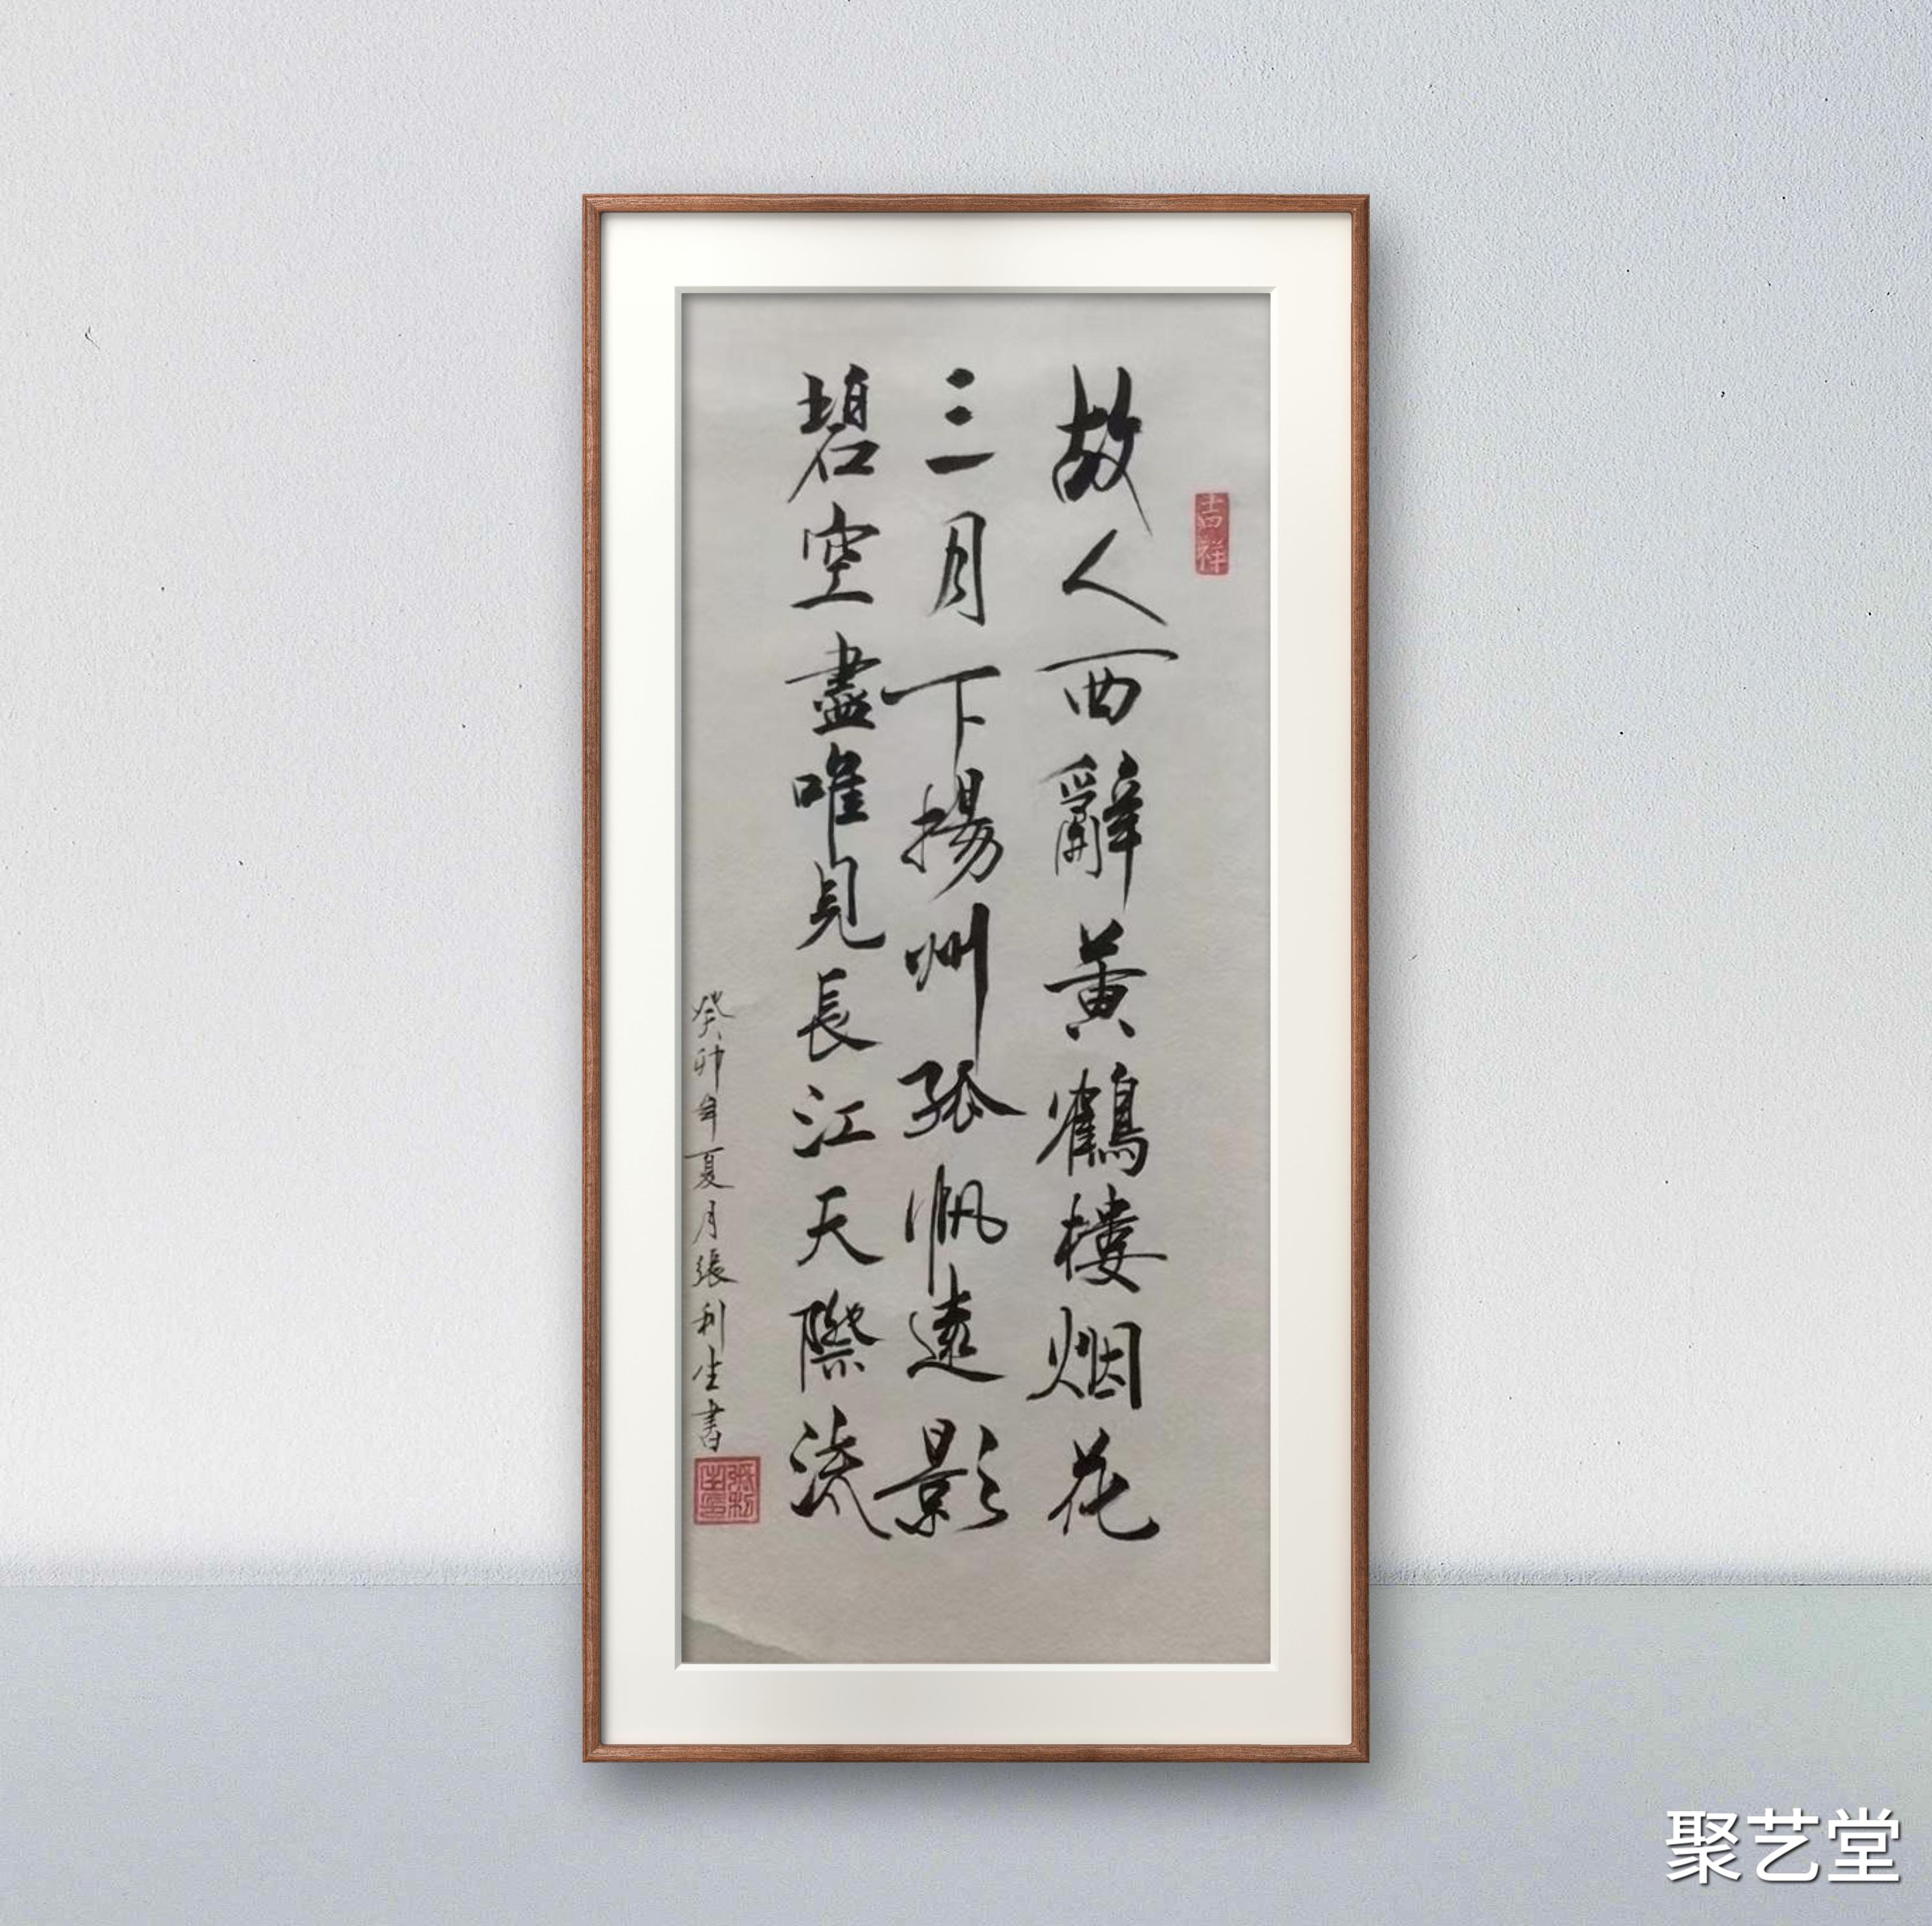 故人西辭黃鶴樓烟花
三月下揚州孤帆遠影
碧空盡唯見長江天際流
癸卯年夏月張利生書
吉祥
張利生
聚艺堂